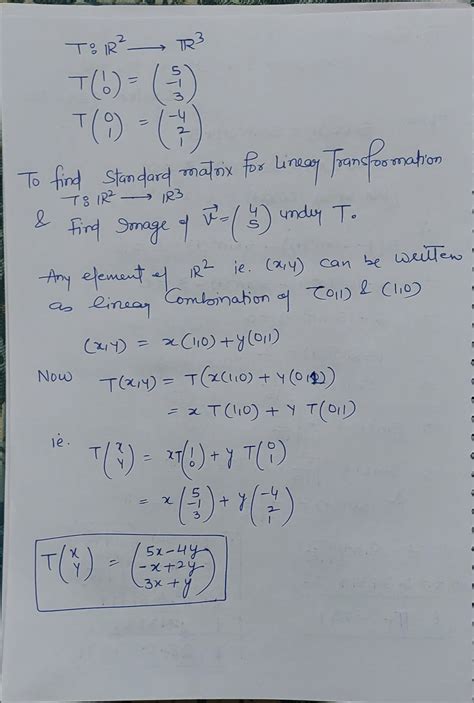 T: ℝ² ⟶ ℝ³
T(1 0) = (5 -1 3)
T(0 1) = (-4 2 1)
To find Standard matrix for Linear Transformation
T: ℝ² ⟶ ℝ³
& Find Image of v⃗ = (4 5) under T.
Any element of ℝ² ie. (x,y) can be written
as linear Combination of (0,1) & (1,0)
(x,y) = x(1,0) + y(0,1)
Now T(x,y) = T(x(1,0) + y(0,1))
= x T(1,0) + y T(0,1)
ie. T(x y) = xT(1 0) + y T(0 1)
= x(5 -1 3) + y(-4 2 1)
T(x y) = (5x-4y -x+2y 3x+y)